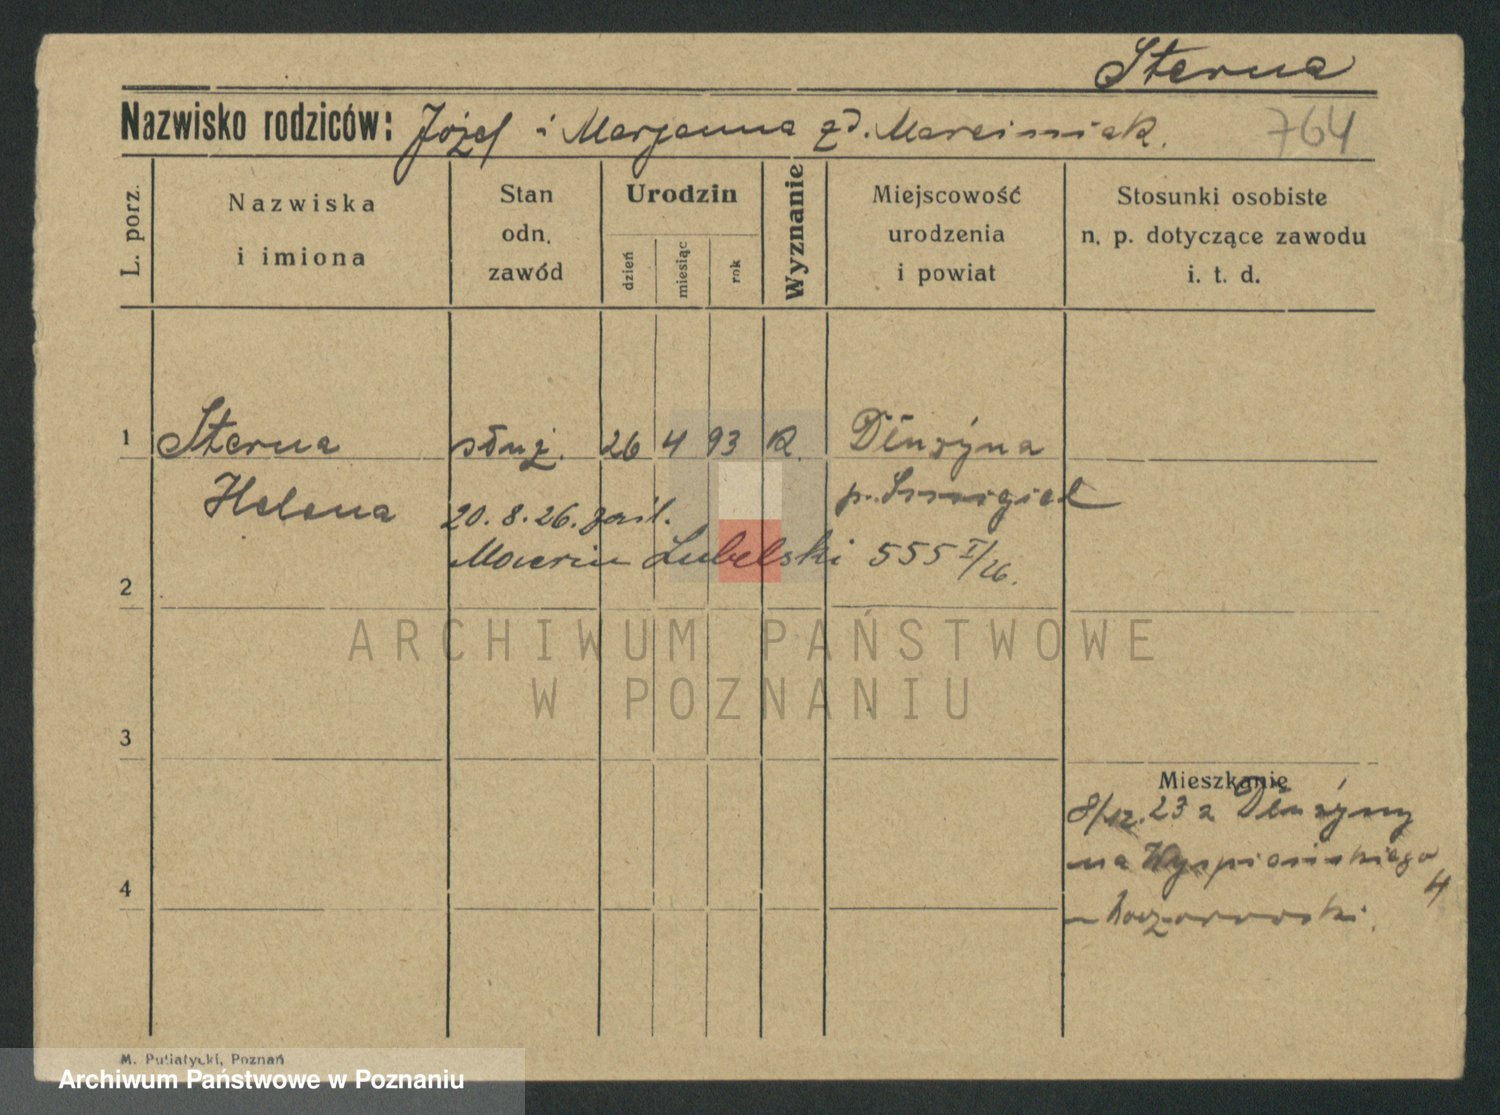 Sterna
Nazwisko rodziców: Józef i Marjanna zd. Marciniak.
764
L. porz.
Nazwiska
i imiona
Stan
odn.
zawód
Urodzin
dzień
miesiąc
rok
Wyznanie
Miejscowość
urodzenia
i powiat
Stosunki osobiste
n. p. dotyczące zawodu
i. t. d.
1 Sterna służ. 26 4 93 R. Dłużyna
Helena p. Śmigiel
20.8.26. zaśl.
Marcin Lubelski 555 I/26.
2
ARCHIWUM PAŃSTWOWE
W POZNANIU
3
Mieszkanie
8/12.23 z Dłużyny
na Wyspiańskiego 4
4
M. Putiatycki, Poznań
Archiwum Państwowe w Poznaniu